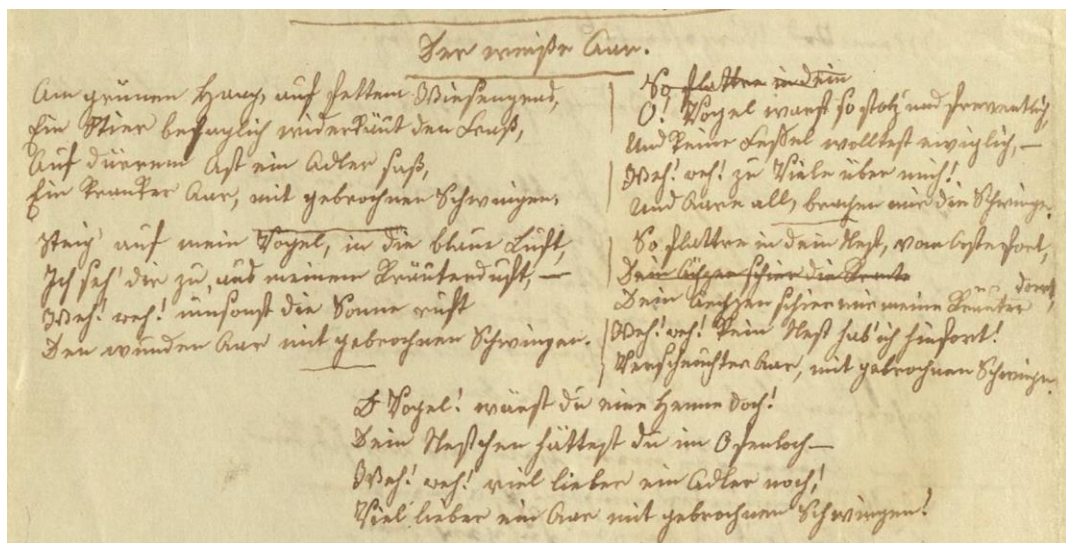 Der weiße Aar.
Am grünen Haag, auf fettem Wiesengras,
Ein Stier behaglich widerkäut den Fraß,
Auf dürrem Ast ein Adler saß,
Ein kranker Aar, mit gebrochnen Schwingen.
Steig' auf mein Vogel, in die blaue Luft,
Ich seh' dir zu, aus meinem Kräuterduft, —
Weh! weh! umsonst die Sonne ruft
Den wunden Aar mit gebrochnen Schwingen.
So flattre in dein
O! Vogel warst so stolz und freventlich,
Und keine Fessel wolltest ewiglich, —
Weh! weh! zu Viele über mich!
Und Aare all, brachen mir die Schwingen.
So flattre in dein Nest, vom Aste fort,
Dein Ächzen schier die Kräute
Dein Aechzen schier mir meine Kräuter dorrt,
Weh! weh! kein Nest hab' ich hinfort!
Verscheuchter Aar, mit gebrochnen Schwingen.
O Vogel! wärst du eine Henne doch!
Dein Nestchen hättest du im Ofenloch —
Weh! weh! viel lieber ein Adler noch!
Viel lieber ein Aar mit gebrochnen Schwingen!